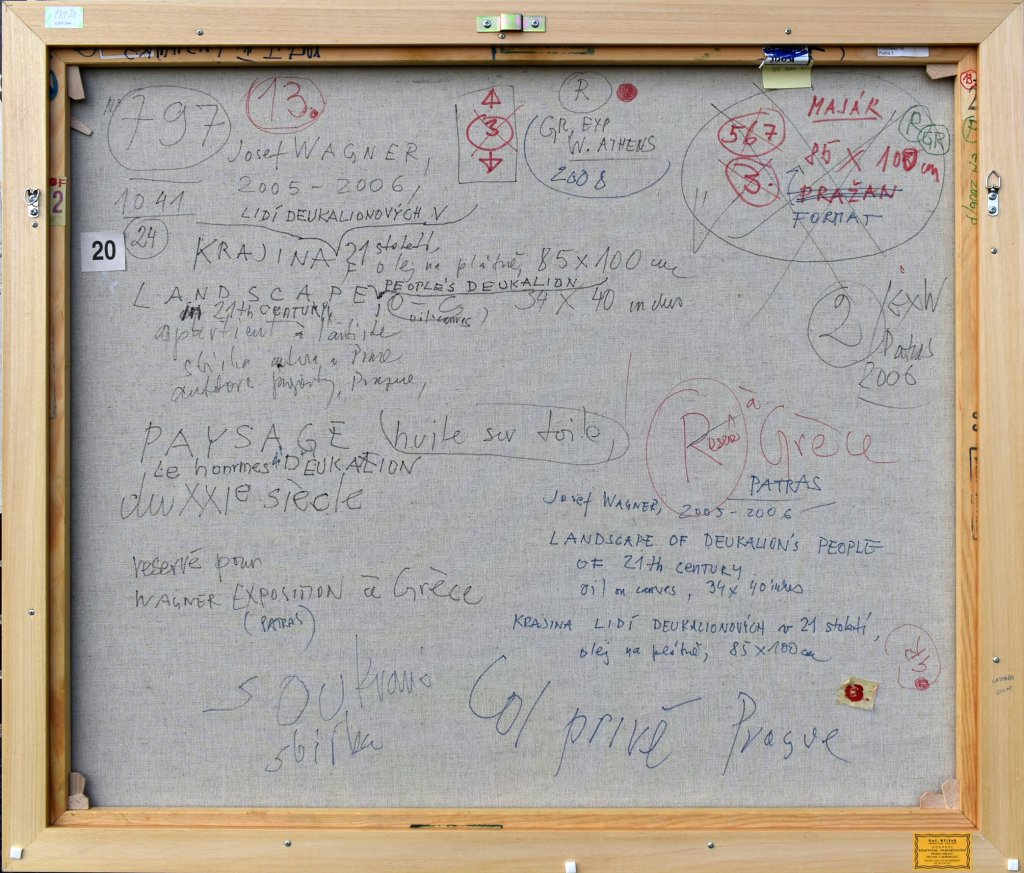 1813D
797
13.
3
R
GR, EXP
W. ATHENS
2008
MAJÁK
567
3.
85 X 100 cm
PRAŽAN
FORMAT
R
GR
Josef WAGNER,
2005 - 2006,
1041
24
LIDÍ DEUKALIONOVÝCH V
20
KRAJINA 21 století,
olej na plátně, 85 x 100 cm
LANDSCAPE PEOPLE'S DEUKALION
in 21th CENTURY, 34 x 40 inches
appartient à l'artiste
sbírka autora
Prague,
2
ExW
Patras
2006
PAYSAGE huile sur toile,
Le hommes DEUKALION
du XXIe siècle
Reservé à Grèce
PATRAS
Josef WAGNER, 2005-2006
LANDSCAPE OF DEUKALION'S PEOPLE
OF 21th CENTURY
oil on canves, 34x 40 inches
reservé pour
WAGNER EXPOSITION à Grèce
(PATRAS)
KRAJINA LIDÍ DEUKALIONOVÝCH v 21 století,
olej na plátně, 85 x 100 cm
GR
SOUKromá
sbírka
Col privé Prague
Ant. Křížek